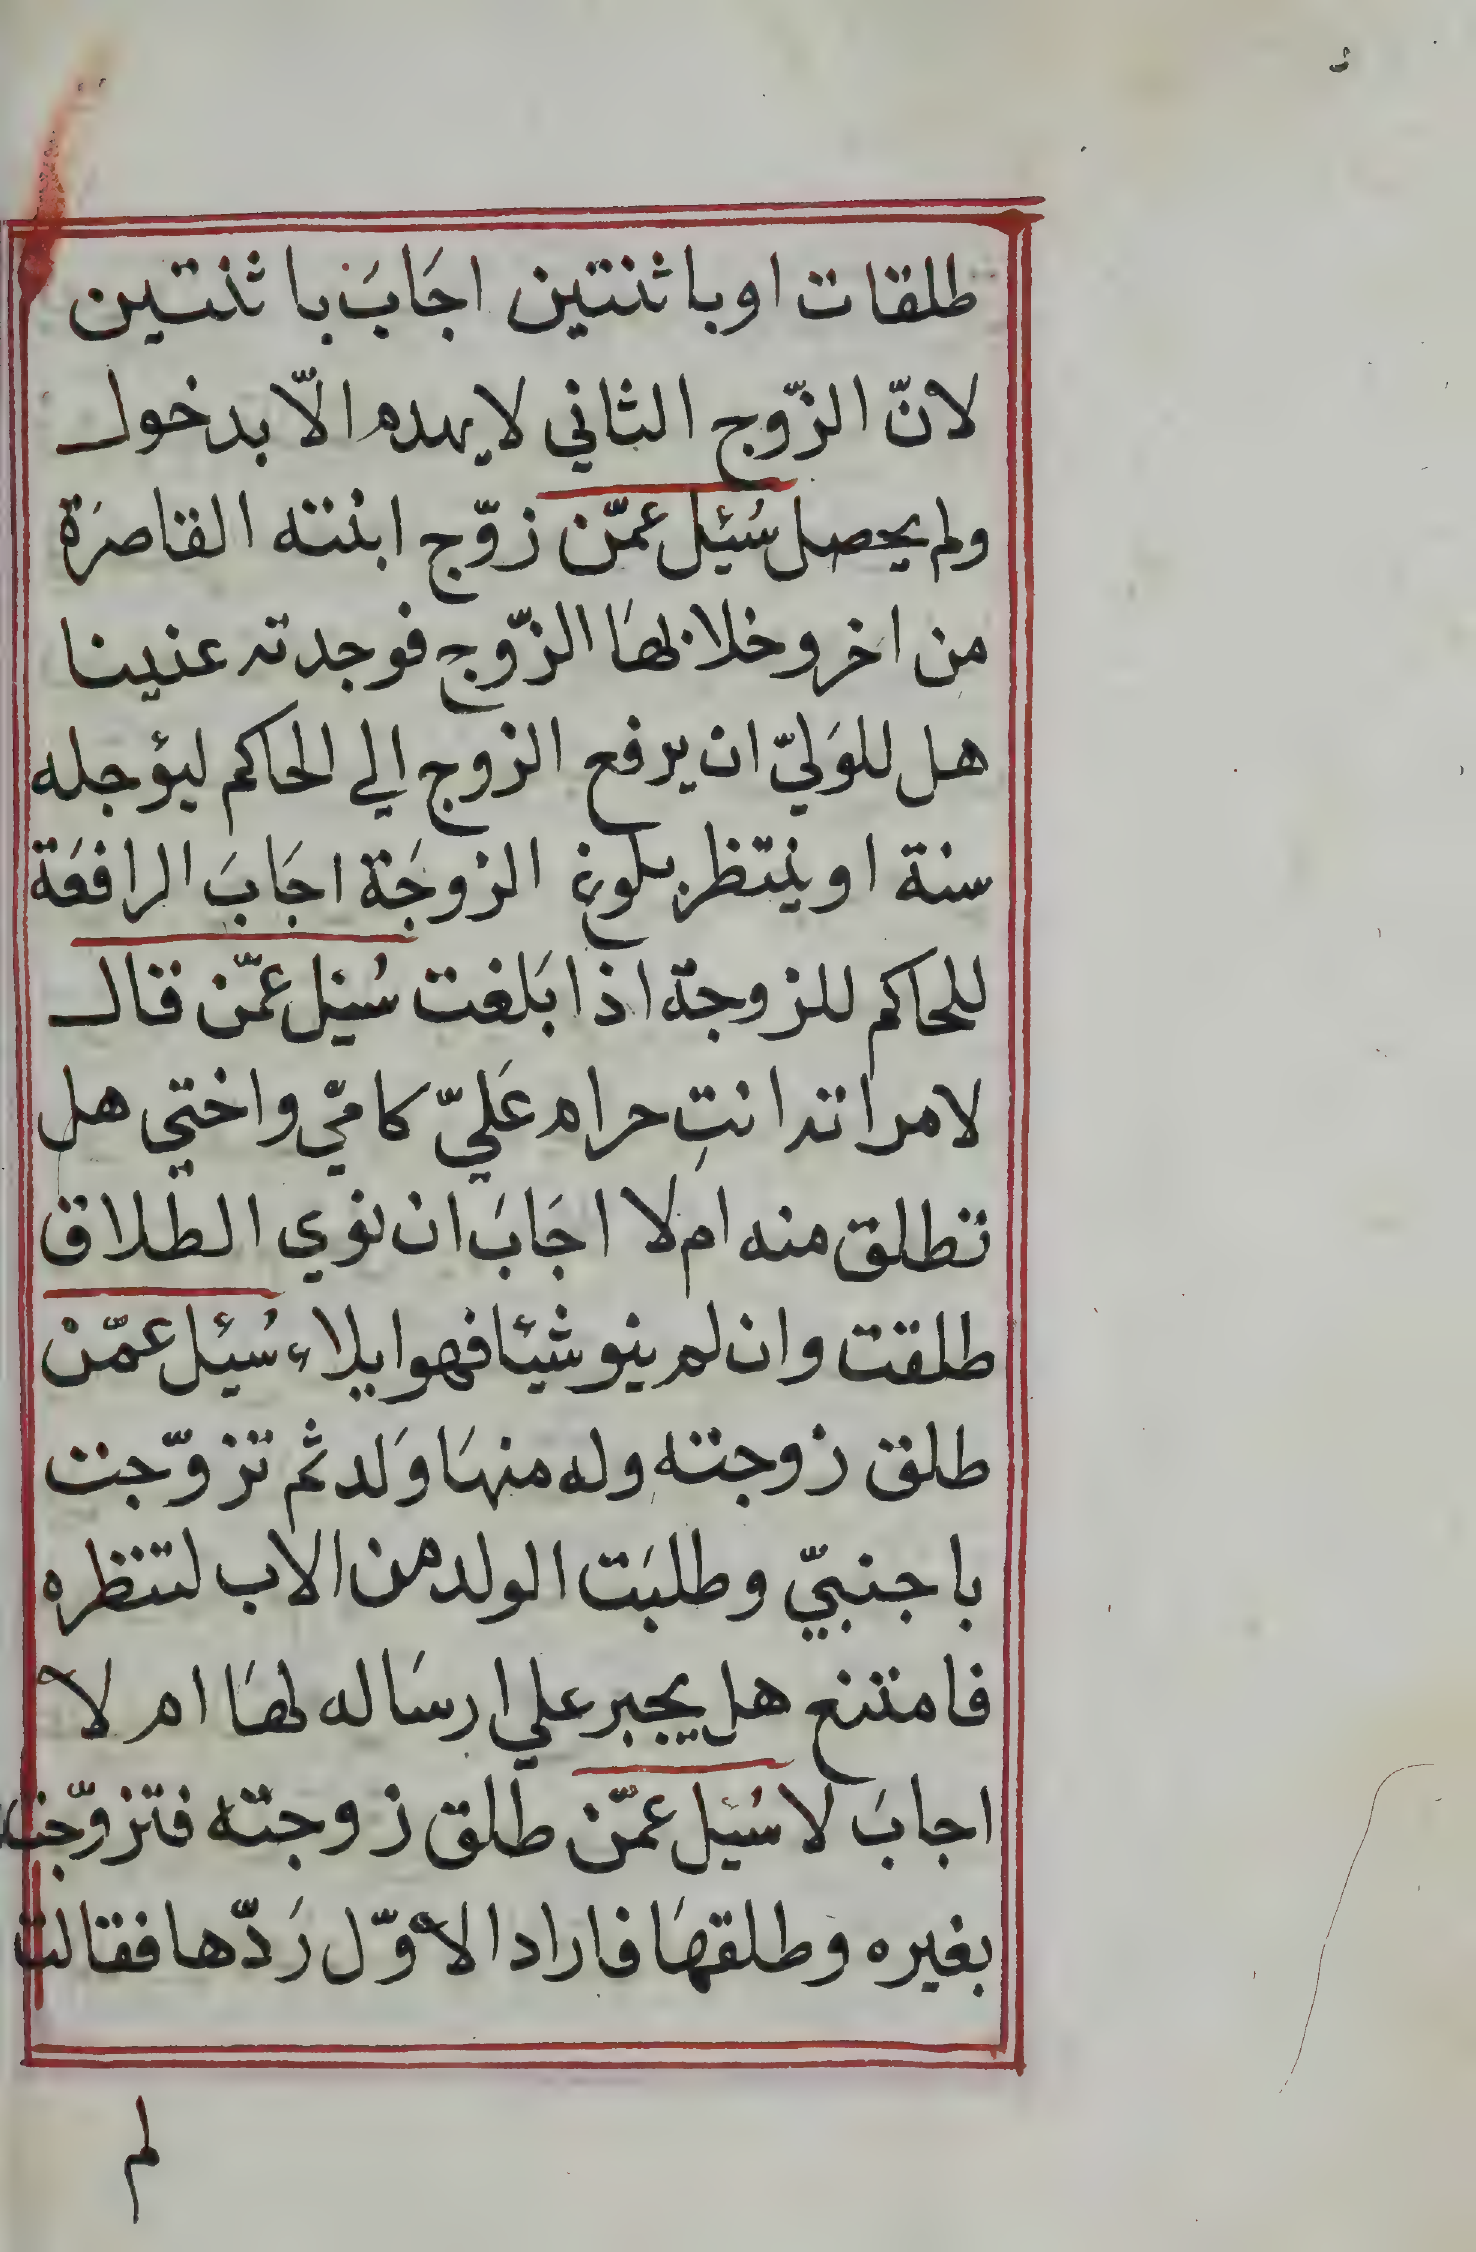 طلقات او باثنتين اجَابَ باثنتين
لانّ الزّوج الثاني لا يهدم الّا بدخول
ولم يحصل سُئِل عمّن زوّج ابنته القاصرَة
من اخر وخلا بهَا الزّوج فوجدته عنينا
هل للوَليّ ان يرفع الزوج الي الحاكم ليؤجله
سنة او ينتظر بلوغ الزوجَة اجَابَ الرافعَة
للحاكم للزوجة اذا بَلغت سُئِل عمّن قال
لامراته انتِ حرام عَليّ كامّي واختي هل
تطلق منه ام لا اجَابَ ان نوي الطلاق
طلقت وان لم ينو شيئا فهو ايلاء سُئِل عمّن
طلق زوجته وله منهَا وَلد ثم تزوّجت
باجنبيّ وطلبَت الولد من الاب لتنظره
فامتنع هل يجبر علي ارسَاله لهَا ام لا
اجابَ لا سُئِل عمّن طلق زوجته فتزوّجت
بغيره وطلقهَا فاراد الأوّل رَدّها فقالت
لم